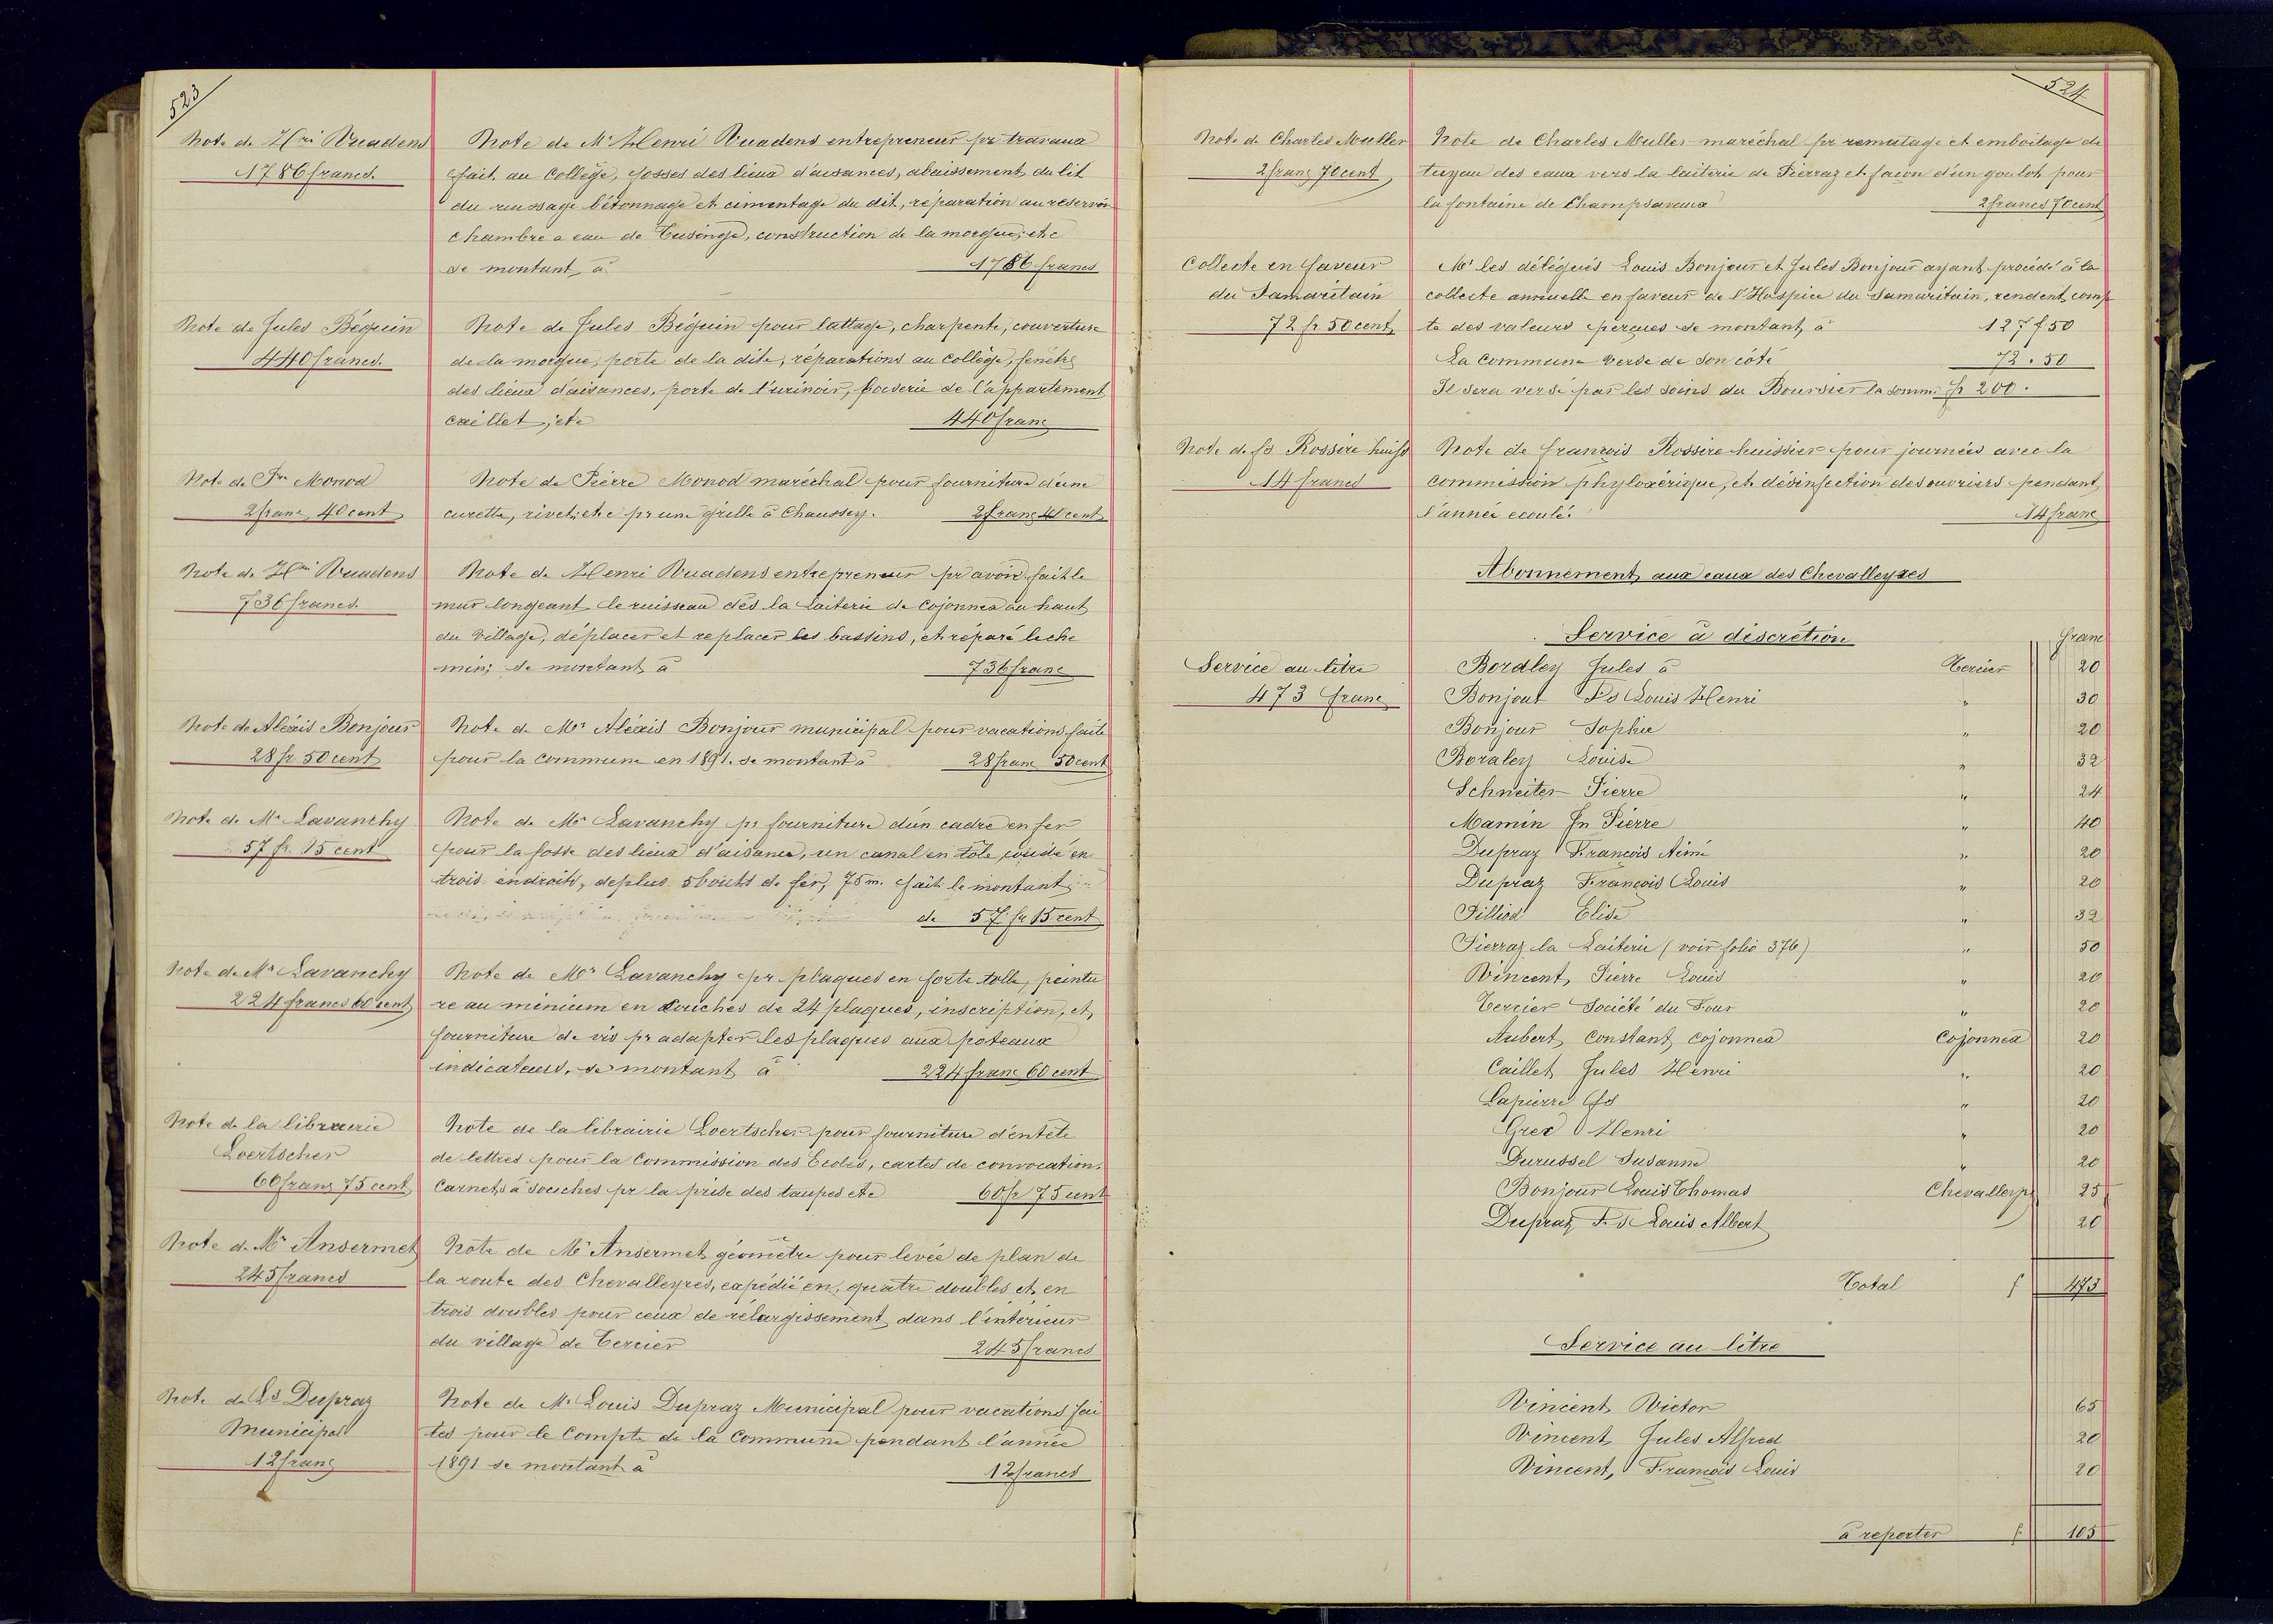 523
Note de Hri Vuadens
1786 francs.
Note de Mr Henri Vuadens entrepreneur pr travaux
fait au Collège, fosses des lieux d'aisances, abaissement du lit
du ruissage bétonnage et cimentage du dit, réparation au réservoir
chambre a eau de Tusinge, construction de la morgue, etc
se montant à 1786 francs
Note de Jules Béguin
440 francs.
Note de Jules Béguin pour lattage, charpente, couverture
de la morgue, porte de la dite, réparations au collège, fenêtre
des lieux d'aisances, porte de l'urinoir, boiserie de l'appartement
Caillet, etc 440 franc
Note de Pre Monod
2 franc, 40 cent
Note de Pierre Monod maréchal pour fourniture d'une
curette, rivet, etc pr une grille à Chaussey. 2 franc 40 cent
Note de Hri Vuadens
736 francs.
Note de Henri Vuadens entrepreneur pr avoir fait le
mur longeant le ruisseau dès la Laiterie de Cojonnex au haut
du village, déplacer et replacer les bassins, et réparé le che
min, se montant à 736 franc
Note de Alexis Bonjour
28 fr 50 cent
Note de Mr Alexis Bonjour municipal pour vacations faite
pour la commune en 1891. se montant à 28 franc 50 cent
Note de Mr Lavanchy
57 fr. 15 cent
Note de Mr Lavanchy pr fourniture d'un cadre en fer
pour la fosse des lieux d'aisance, un canal en tôle, coudé en
trois endroits, deplus 5 bouts de fer, 75 m. fait le montant
de 57 fr 15 cent
Note de Mr Lavanchy
224 francs 60 cent
Note de Mr Lavanchy pr plaques en forte tolle, peintu
re au minium en couches de 24 plaques, inscription, et
fourniture de vis pr adapter les plaques aux poteaux
indicateurs, se montant à 224 franc 60 cent
Note de la librairie
Loertscher
60 franc 75 cent
Note de la librairie Loertscher pour fourniture d'entête
de lettres pour la Commission des Ecoles, cartes de convocation,
Carnets à souches pr la prise des taupes etc 60 fr 75 cent
Note de Mr Ansermet
245 francs
Note de Mr Ansermet géomètre pour levée de plan de
la route des Chevalleyres, expédié en, quatre doubles et en
trois doubles pour ceux de rélargissement dans l'intérieur
du village de Tercier 245 francs
Note de Ls Dupraz
Municipal
12 franc
Note de Mr Louis Dupraz Municipal pour vacations fai
tes pour le Compte de la Commune pendant l'année
1891 se montant à 12 francs
524
Note de Charles Muller
2 franc 70 cent
Note de Charles Muller maréchal pr remutage et emboitage de
tuyau des eaux vers la laiterie de Pierraz et façon d'un goulot pour
la fontaine de Champsavaux 2 francs 70 cent
Collecte en faveur
du Samaritain
72 fr. 50 cent
Mr les délégués Louis Bonjour et Jules Bonjour ayant procédé à la
collecte annuelle en faveur de l'Hospice du Samaritain, rendent comp
te des valeurs perçues se montant à 127 f 50
La Commune verse de son côté 72 . 50
Il sera versé par les soins du Boursier la somme fr 200.
Note de fs Rossire huiss
14 francs
Note de françois Rossire huissier pour journées avec la
commission phyloxérique, et désinfection des ouvriers pendant
l'année ecoulé. 14 franc
Abonnement aux eaux des Chevalleyres
Service à discrétion
franc
Service au litre
473 franc
Bordley Jules à Tercier 20
Bonjour Fs Louis Henri " 30
Bonjour Sophie " 20
Boraley Louise " 32
Schneiter Pierre " 24
Mamin Jn Pierre " 40
Dupraz François Aimé " 20
Dupraz François Louis " 20
Pilliod Elise " 32
Pierraz la Laiterie (voir folio 376) " 50
Vincent Pierre Louis " 20
Tercier Société du Four " 20
Aubert Constant Cojonnex Cojonnex 20
Caillet Jules Henri " 20
Lapierre fs " 20
Grex Henri " 20
Durussel Susanne " 20
Bonjour Louis Thomas Chevalleyr 25
Dupraz Fs Louis Albert 20
Total f 473
Service au litre
Vincent Victor 65
Vincent Jules Alfred 20
Vincent, François Louis 20
à reporter f. 105